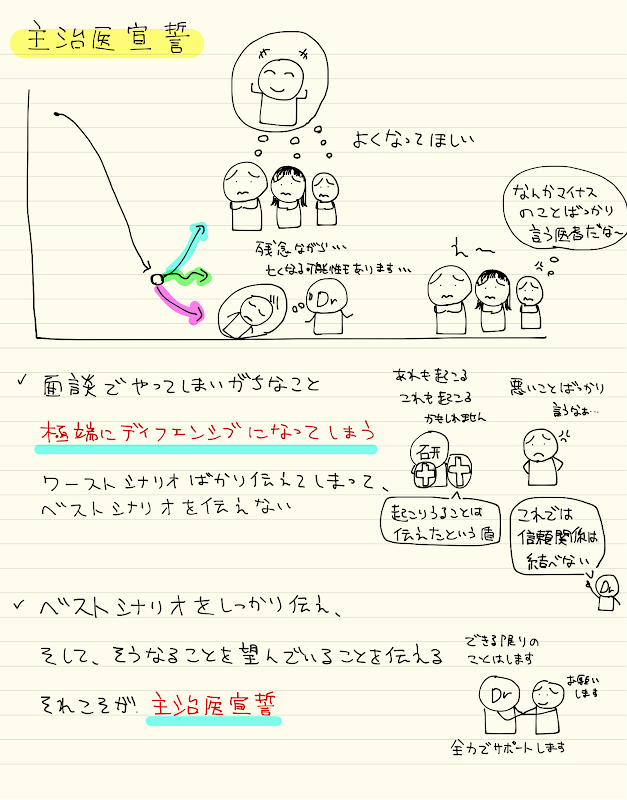 主治医宣誓
よくなってほしい
なんかマイナス
のことばっかり
言う医者だな〜
え〜
残念ながら…
亡くなる可能性もあります…
Dr
✓ 面談でやってしまいがちなこと
極端にディフェンシブになってしまう
ワーストシナリオばかり伝えてしまって、
ベストシナリオを伝えない
あれも起こる
これも起こる
かもしれません
研
起こりうることは
伝えたという盾
悪いことばっかり
言うなぁ…
これでは
信頼関係は
結べない
Dr
✓ ベストシナリオをしっかり伝え、
そして、そうなることを望んでいることを伝える
それこそが 主治医宣誓
できる限りの
ことはします
Dr
お願い
します
全力でサポートします